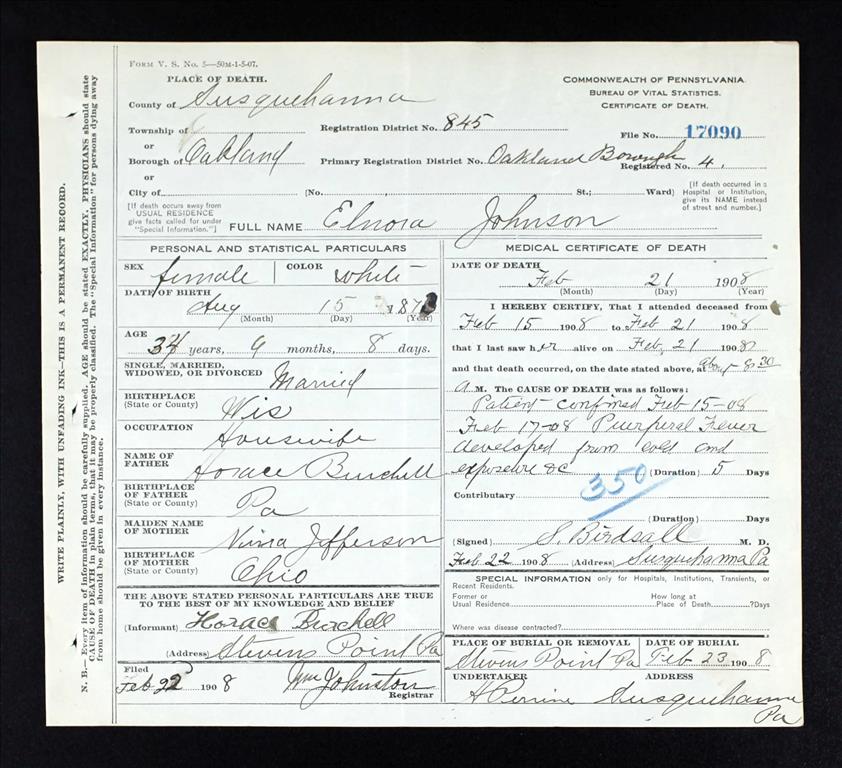 FORM V. S. No. 5—50M-1-5-07.
PLACE OF DEATH.
County of Susquehanna
Township of
or
Borough of Oakland
or
City of
Registration District No. 845
Primary Registration District No. Oakland Borough
(No. St.; Ward)
COMMONWEALTH OF PENNSYLVANIA
BUREAU OF VITAL STATISTICS.
CERTIFICATE OF DEATH.
File No. 17090
Registered No. 4.
[If death occurs away from
USUAL RESIDENCE
give facts called for under
"Special Information."]
[If death occurred in a
Hospital or Institution,
give its NAME instead
of street and number.]
FULL NAME Elnora Johnson
PERSONAL AND STATISTICAL PARTICULARS
SEX female COLOR white
DATE OF BIRTH
Aug 15 187
(Month) (Day) (Year)
AGE
34 years, 9 months, 8 days.
SINGLE, MARRIED,
WIDOWED, OR DIVORCED Married
BIRTHPLACE
(State or County) Wis
OCCUPATION Housewife
NAME OF
FATHER Horace Burchell
BIRTHPLACE
OF FATHER
(State or County) Pa
MAIDEN NAME
OF MOTHER Jefferson
BIRTHPLACE
OF MOTHER
(State or County) Ohio
THE ABOVE STATED PERSONAL PARTICULARS ARE TRUE
TO THE BEST OF MY KNOWLEDGE AND BELIEF
(Informant) Horace Burchell
(Address) Stevens Point Pa
Filed
Feb 22 1908 Wm Johnston
Registrar
MEDICAL CERTIFICATE OF DEATH
DATE OF DEATH
Feb 21 1908
(Month) (Day) (Year)
I HEREBY CERTIFY, That I attended deceased from
Feb 15 1908 to Feb 21 1908
that I last saw her alive on Feb, 21 1908
and that death occurred, on the date stated above, at 8 30
a M. The CAUSE OF DEATH was as follows:
Patient confined Feb 15-08
Feb 17-08 Puerperal Fever
developed from cold and
exposure &c (Duration) 5 Days
350
Contributory
(Duration) Days
(Signed) S. Birdsall M. D.
Feb 22 1908 (Address) Susquehanna Pa
SPECIAL INFORMATION only for Hospitals, Institutions, Transients, or
Recent Residents.
Former or
Usual Residence
How long at
Place of Death ? Days
Where was disease contracted?
PLACE OF BURIAL OR REMOVAL
Stevens Point Pa
DATE OF BURIAL
Feb 23 1908
UNDERTAKER
H Perrine
ADDRESS
Susquehanna
Pa
WRITE PLAINLY, WITH UNFADING INK—THIS IS A PERMANENT RECORD.
N. B.—Every item of information should be carefully supplied. AGE should be stated EXACTLY. PHYSICIANS should state
CAUSE OF DEATH in plain terms, that it may be properly classified. The "Special Information" for persons dying away
from home should be given in every instance.